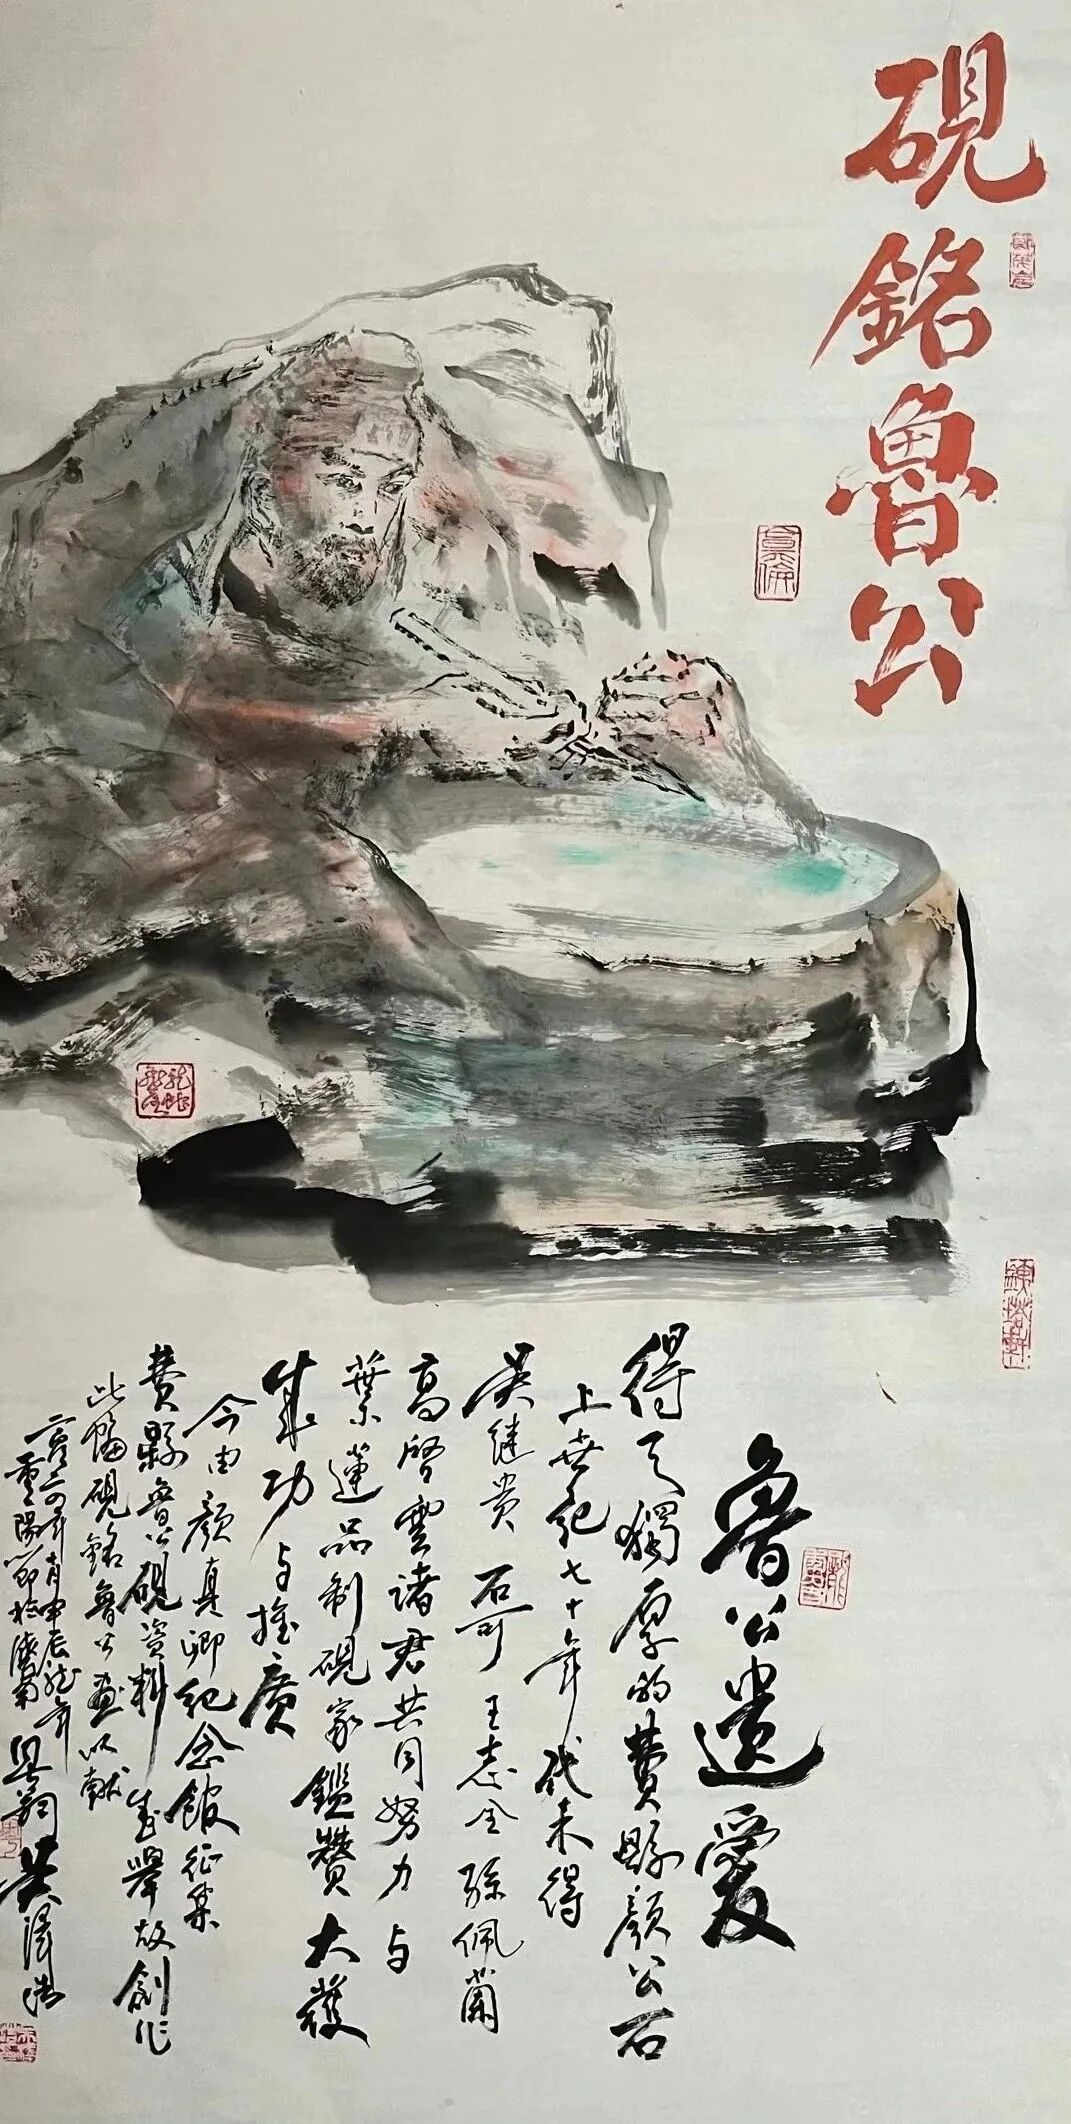 硯銘魯公
魯公遺愛
得天獨厚的費縣顏公石
上世紀七十年代末得
吴继贵 石可 王志全 孫佩蘭
高啓雲諸君共同努力与
葉蓮品制硯家鑑贊大獲
成功与推廣
今由顏真卿纪念館征集
費縣魯公硯资料 盛舉故創作
此幅硯銘魯公畫以献
二零二四年 甲辰龙年
重陽節於濟南